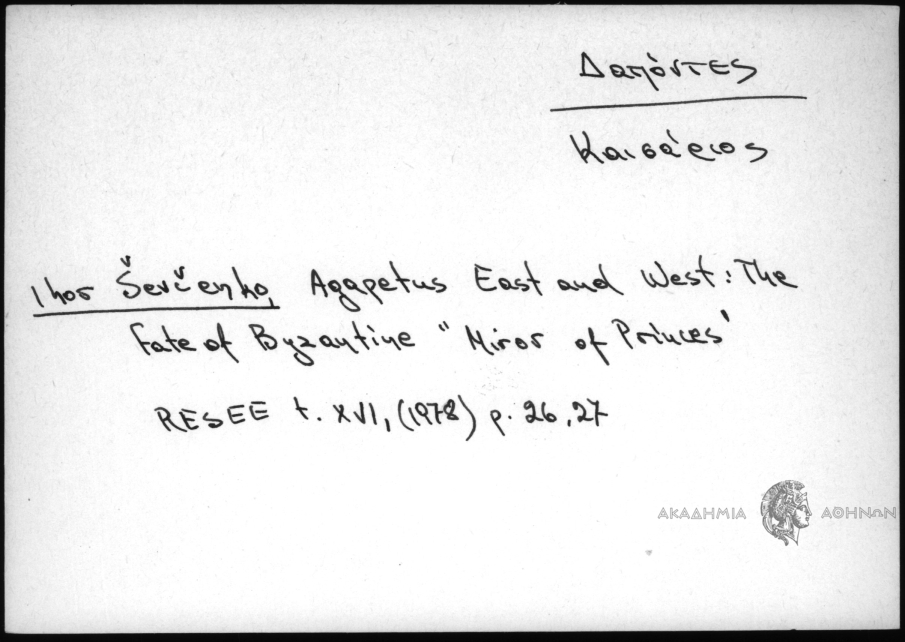 Δαπόντες
Καισάριος
Ihor Ševčenko, Agapetus East and West: The
Fate of Byzantine "Miror of Princes"
RESEE t. XVI, (1978) p. 26, 27
ΑΚΑΔΗΜΙΑ ΑΘΗΝΩΝ